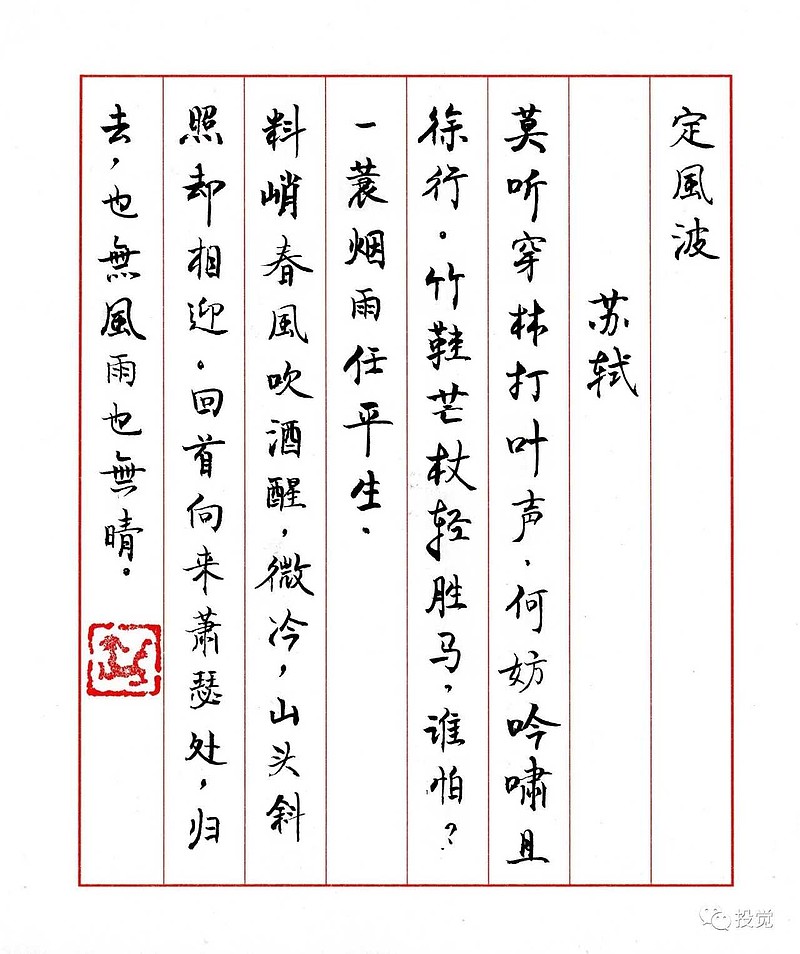 定風波
苏轼
莫听穿林打叶声、何妨吟啸且
徐行。竹鞋芒杖轻胜马，谁怕？
一蓑烟雨任平生、
料峭春風吹酒醒，微冷，山头斜
照却相迎。回首向来萧瑟处，归
去，也無風雨也無晴。
投觉